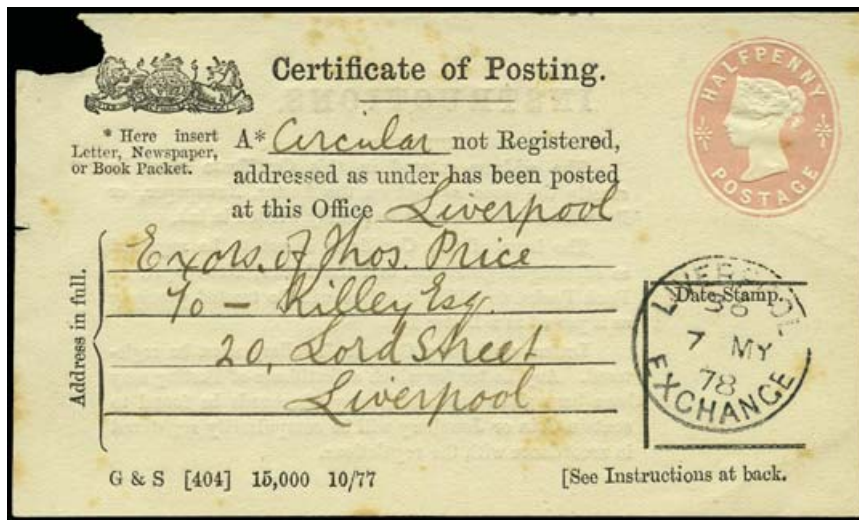 Certificate of Posting.
HALFPENNY
POSTAGE
* Here insert
Letter, Newspaper,
or Book Packet.
A* Circular not Registered,
addressed as under has been posted
at this Office Liverpool
Address in full.
Exors. of Thos. Price
c/o — Killey Esq.
20, Lord Street
Liverpool
Date Stamp.
LIVERPOOL
7 MY
78
EXCHANGE
G & S [404] 15,000 10/77
[See Instructions at back.